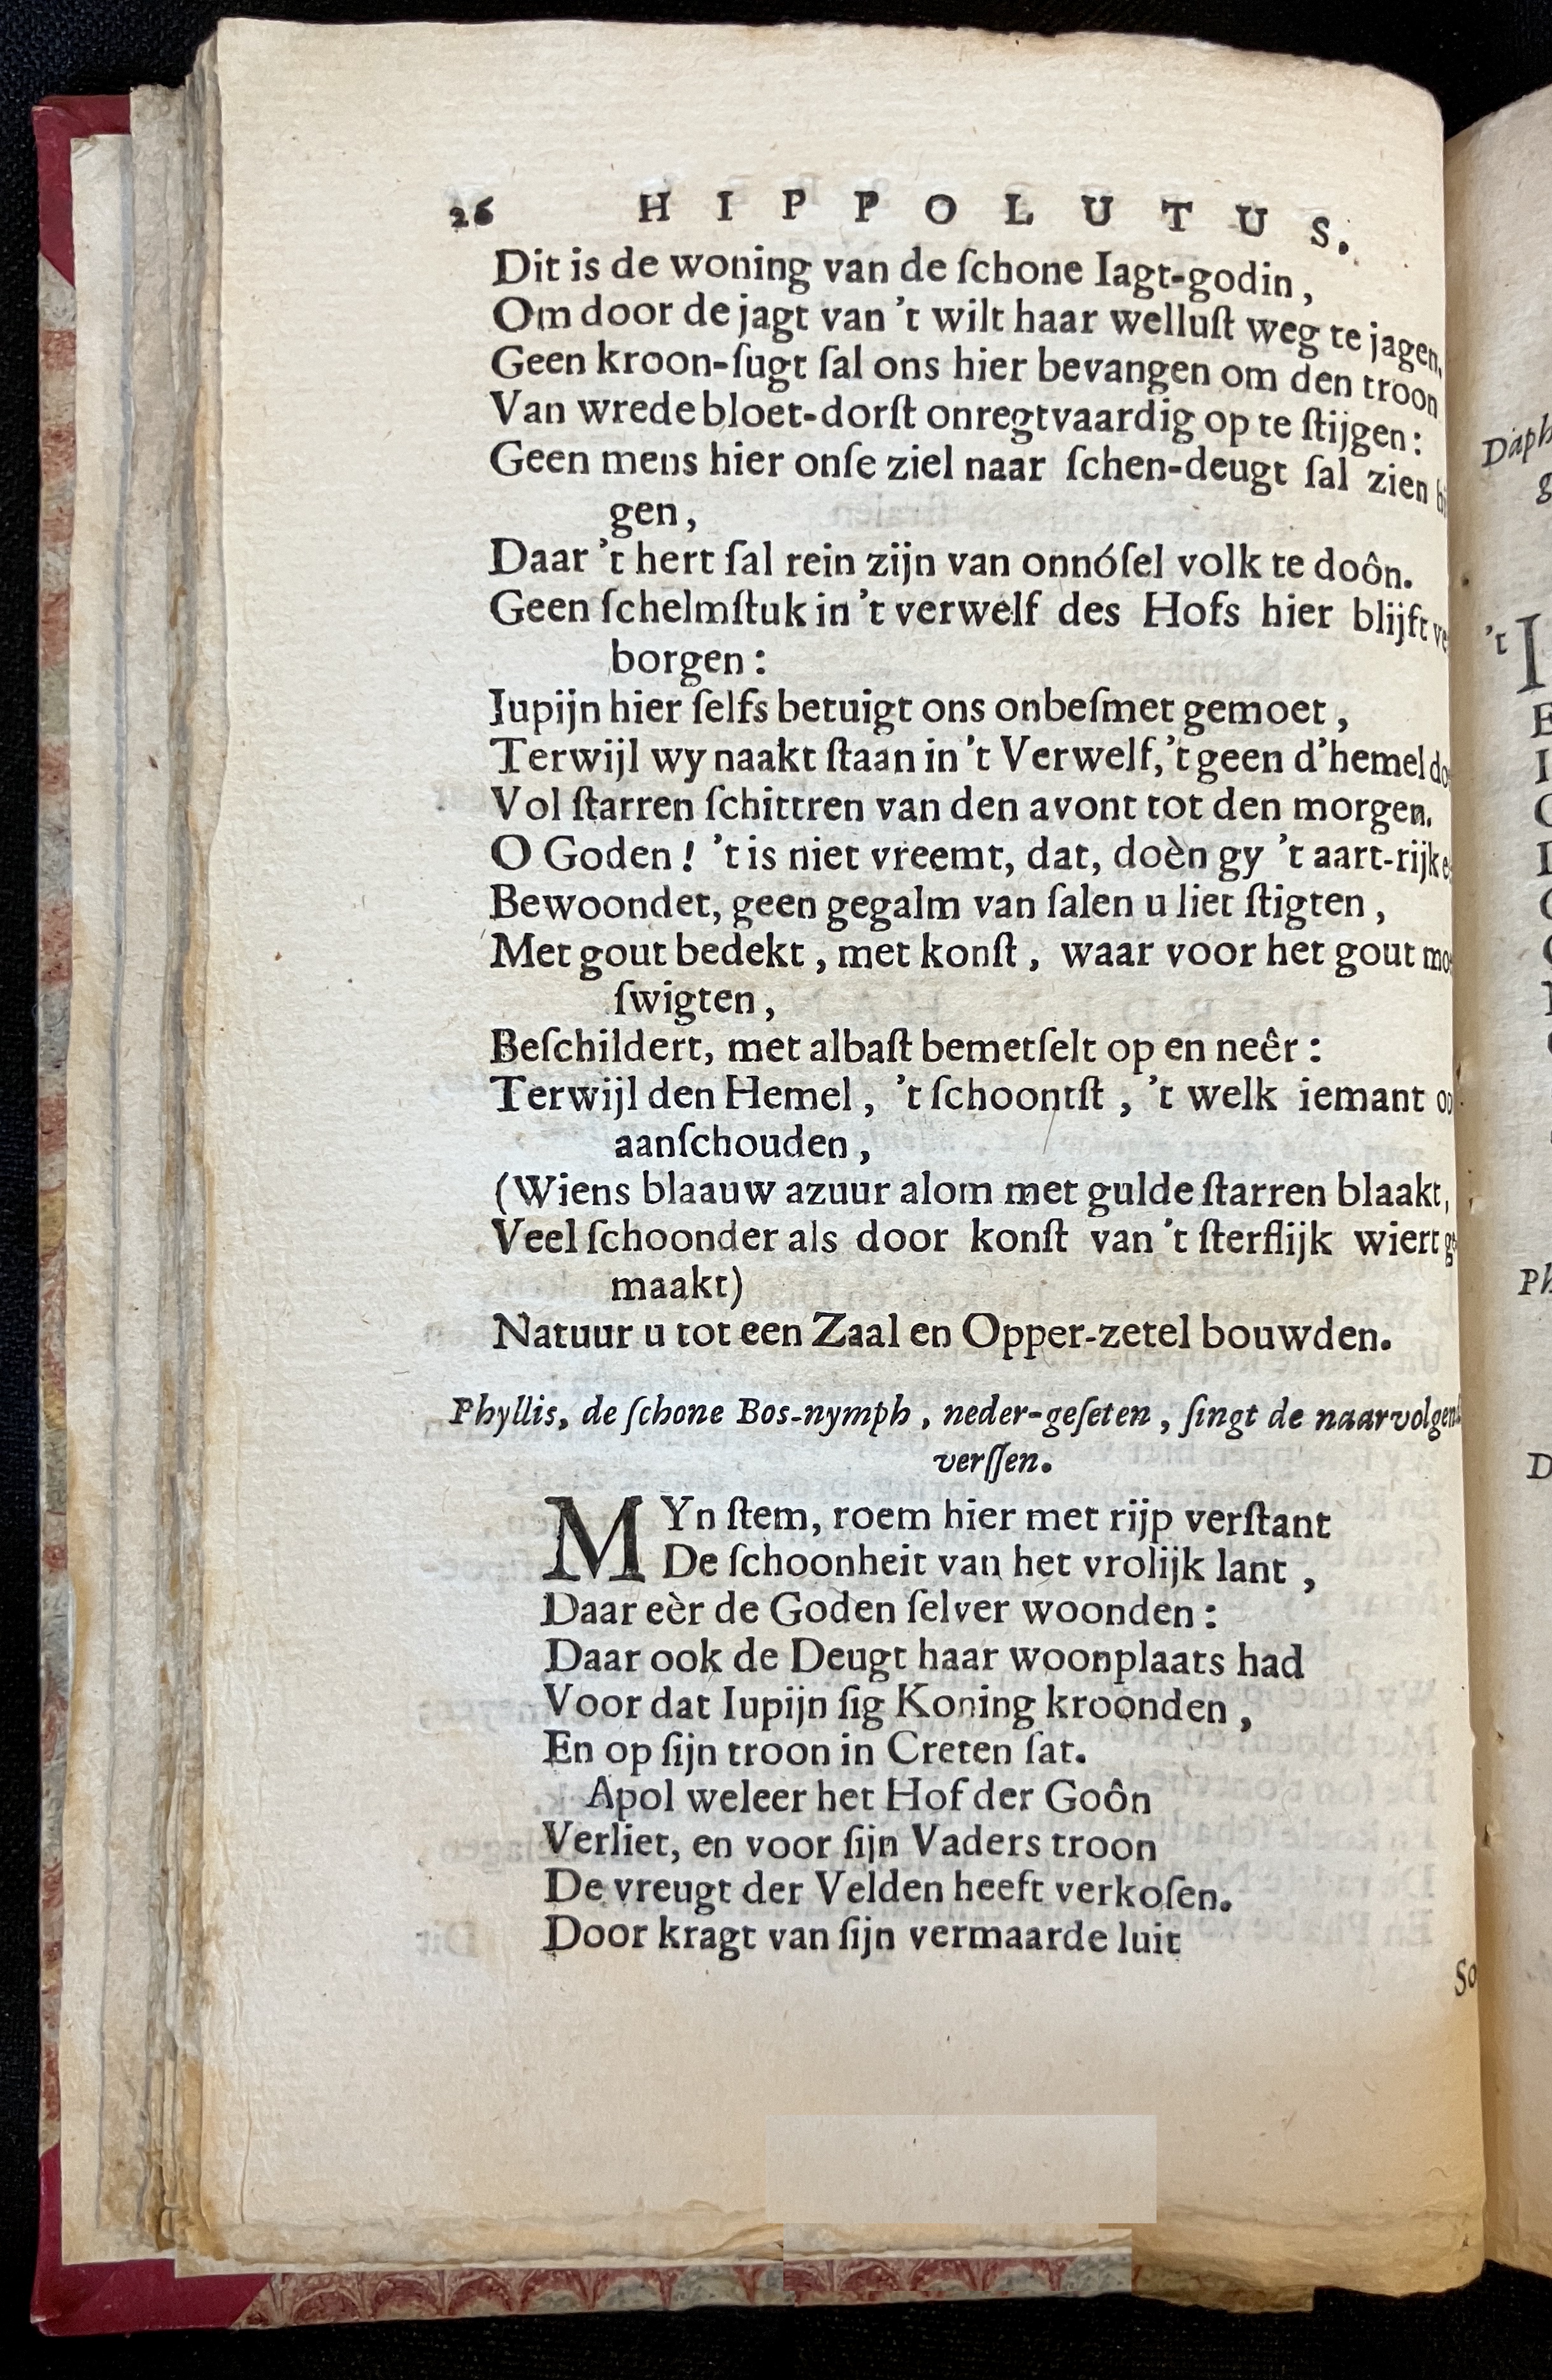 26 HIPPOLUTUS.
Dit is de woning van de ſchone Iagt-godin,
Om door de jagt van 't wilt haar welluſt weg te jagen,
Geen kroon-ſugt ſal ons hier bevangen om den troon
Van wrede bloet-dorſt onregtvaardig op te ſtijgen:
Geen mens hier onſe ziel naar ſchen-deugt ſal zien
gen,
Daar 't hert ſal rein zijn van onnóſel volk te doôn.
Geen ſchelmſtuk in 't verwelf des Hofs hier blijft ve
borgen:
Iupijn hier ſelfs betuigt ons onbeſmet gemoet,
Terwijl wy naakt ſtaan in 't Verwelf, 't geen d'hemel do
Vol ſtarren ſchittren van den avont tot den morgen.
O Goden! 't is niet vreemt, dat, doèn gy 't aart-rijk
Bewoondet, geen gegalm van ſalen u liet ſtigten,
Met gout bedekt, met konſt, waar voor het gout mo
ſwigten,
Beſchildert, met albaſt bemetſelt op en neêr:
Terwijl den Hemel, 't ſchoontſt, 't welk iemant
aanſchouden,
(Wiens blaauw azuur alom met gulde ſtarren blaakt,
Veel ſchoonder als door konſt van 't ſterflijk wiert g
maakt)
Natuur u tot een Zaal en Opper-zetel bouwden.
Phyllis, de ſchone Bos-nymph, neder-geſeten, ſingt de naarvolgen
verſſen.
MYn ſtem, roem hier met rijp verſtant
De ſchoonheit van het vrolijk lant,
Daar eèr de Goden ſelver woonden:
Daar ook de Deugt haar woonplaats had
Voor dat Iupijn ſig Koning kroonden,
En op ſijn troon in Creten ſat.
Apol weleer het Hof der Goôn
Verliet, en voor ſijn Vaders troon
De vreugt der Velden heeft verkoſen.
Door kragt van ſijn vermaarde luit
So
Daph
g
't I
E
I
Ph
D